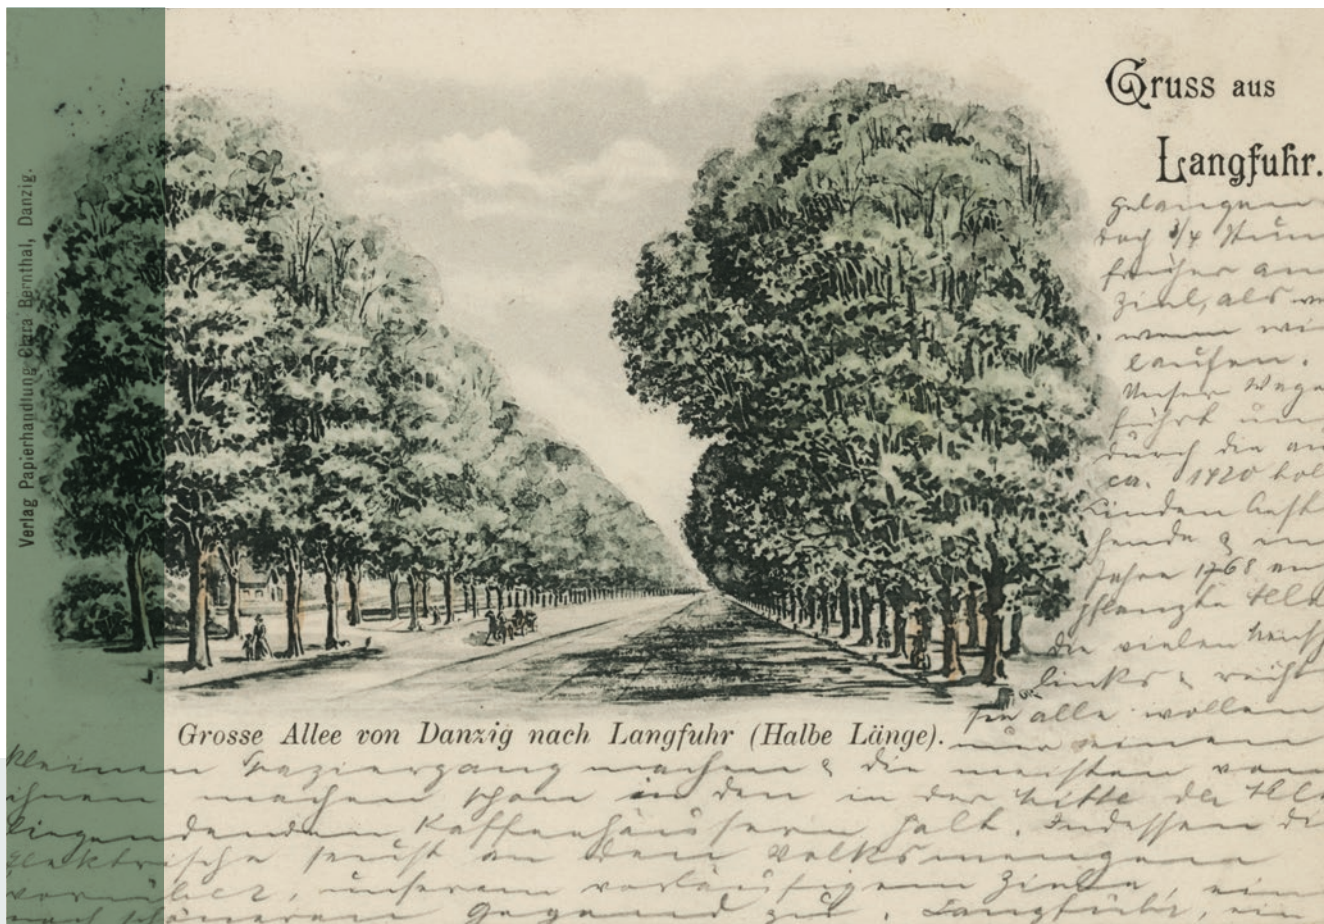 Gruss aus
Langfuhr.
Verlag Papierhandlung Clara Bernthal, Danzig.
gelangen
doch 3/4
früher am
Ziel, als
wenn wir
laufen.
Unser Wage
führt uns
durch die
ca. 1420
Linden
& im
Jahre 1768
pflanzte Alle
die vielen
links & recht
sie alle wollen
Grosse Allee von Danzig nach Langfuhr (Halbe Länge).
nur einen
kleinen Spaziergang machen & die meisten von
ihnen machen schon in den in der Mitte der Alle
liegendenden Kaffeehäusern halt. Indessen die
Elektrische saust an den Volksmengen
vorüber, unserem vorläufigem Ziele, ein
noch schöneren Gegend zu. Langfuhr,